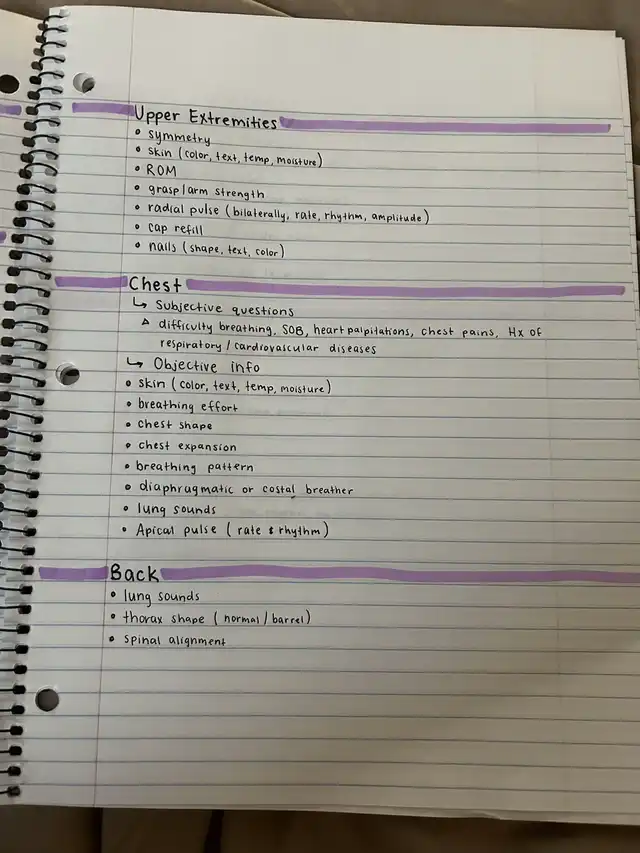 Upper Extremities
• symmetry
• skin (color, text, temp, moisture)
• ROM
• grasp/arm strength
• radial pulse (bilaterally, rate, rhythm, amplitude)
• cap refill
• nails (shape, text, color)
Chest
↳ Subjective questions
△ difficulty breathing, SOB, heart palpitations, chest pains, Hx of
respiratory/cardiovascular diseases
↳ Objective info
• skin (color, text, temp, moisture)
• breathing effort
• chest shape
• chest expansion
• breathing pattern
• diaphrugmatic or costal breather
• lung sounds
• Apical pulse (rate & rhythm)
Back
• lung sounds
• thorax shape (normal/barrel)
• spinal alignment